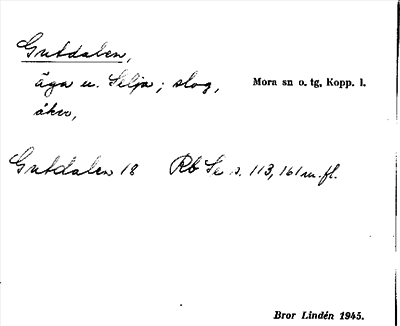 Gutdalen,
äga u. Selja; slog,
Mora sn o. tg, Kopp. l.
åker,
Gutdalen 18 Rb Se s. 113, 161 m. fl.
Bror Lindén 1945.